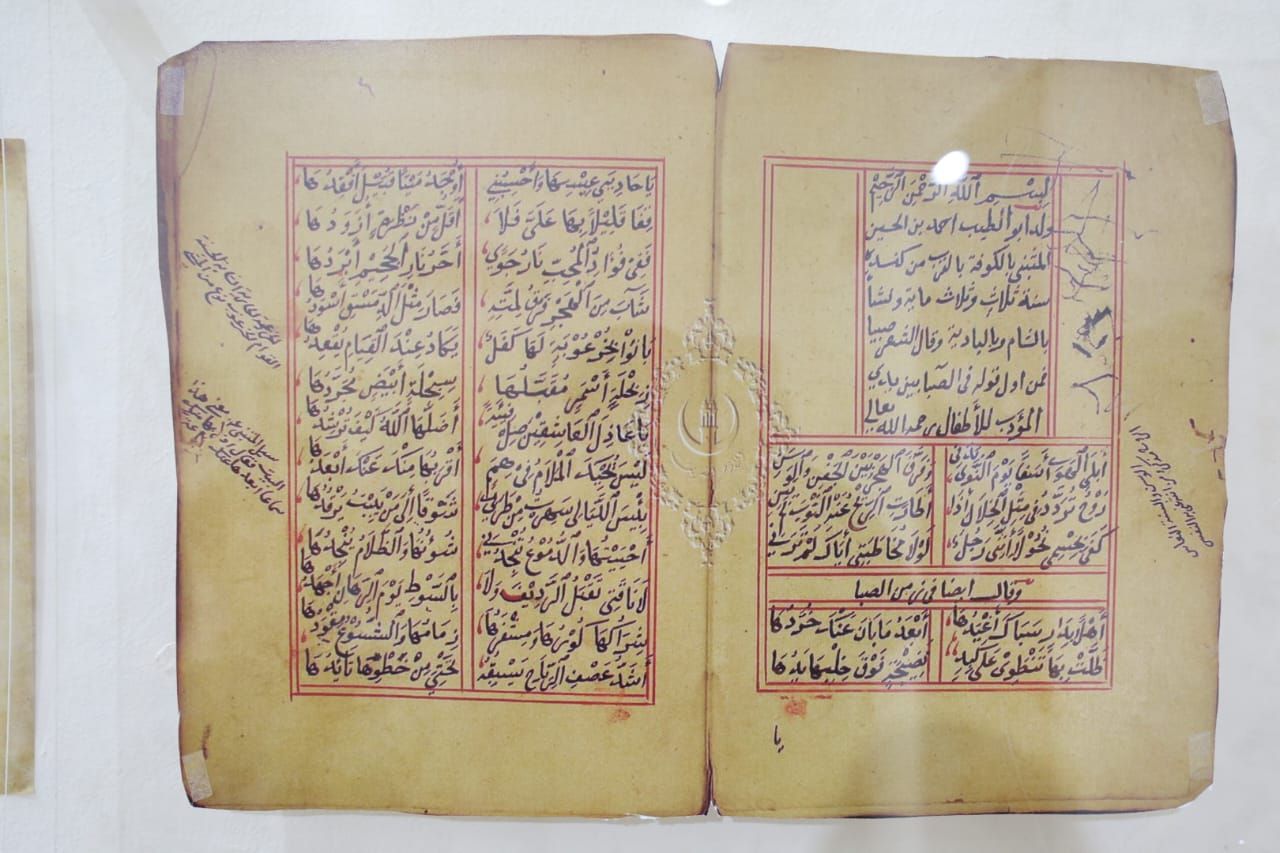 بسم الله الرحمن الرحيم
ولد ابو الطيب احمد بن الحسين
المتنبي بالكوفة بالقرب من كندة
سنة ثلاث وثلاث ماية ونشا
بالشام وبالبادية وقال الشعر صبيا
فمن اول قوله فى الصبا بين يدي
المؤدب للأطفال رحمه الله تعالى
أبلى الهوى أسفا يوم النوى بدنى وفرق الهجر بين الجفن والوسن
روح تردد فى مثل الخلال إذا أطارت الريح عنه الثوب لم يبن
كفى بجسمي نحولا أننى رجل لولا مخاطبتي أياك لم ترني
وقال ايضا فى زمن الصبا
أهلا بدار سباك أغيدها أبعد ما بان عنك خردها
ظلت بها تنطوى على كبد نضيجة فوق خلبها يدها
يا
يا حاديي عيسها وأحسبني أوجد ميتا قبيل أفقدها
قفا قليلا بها علي فلا أقل من نظرة أزودها
ففى فؤاد المحب نار جوي أحر نار الجحيم أبردها
شاب من الهجر فرق لمته فصار مثل الدمقس أسودها
بانوا بخرعوبة لها كفل يكاد عند القيام يقعدها
ربحلة أسمر مقبلها سبحلة أبيض مجردها
يا عاذل العاشقين أضلها الله كيف ترشدها
ليس يحيك الملام فى همم أقربها منك عنك أبعدها
بئس الليالى سهرت من طربي شوقا إلى من يبيت يرقدها
أحييتها والدموع تنجدني شئونها والظلام ينجدها
لا ناقتي تقبل الرديف ولا بالسوط يوم الرهان أجهدها
شراكها كورها ومشفرها زمامها والشسوع مقودها
أشد عصف الرياح يسبقه تحتي من خطوها تأيدها